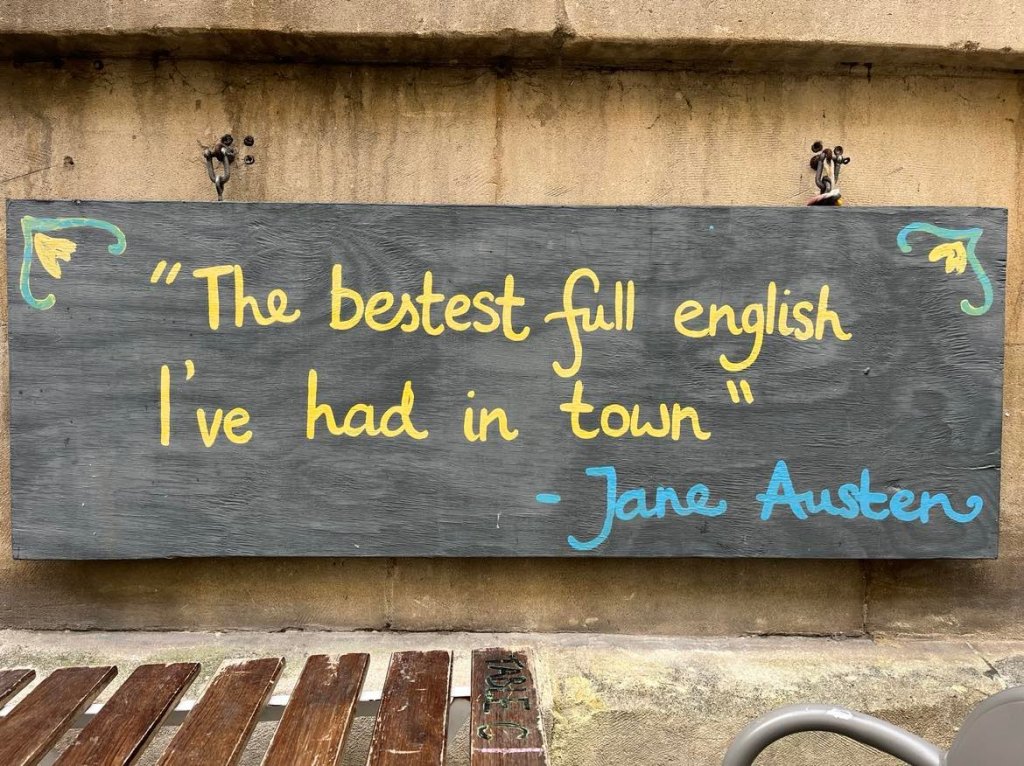 "The bestest full english
I've had in town"
- Jane Austen
TABLE C